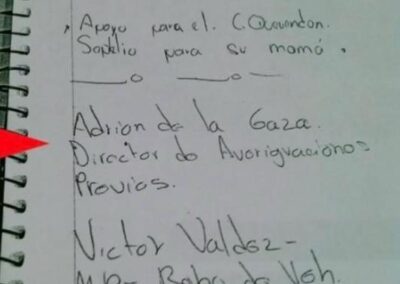 , Apoyo para el. C Quarenton.
Sopelio para su mamá.
Adrion de la Gaza.
Director do Avoriguaciones
Provios.
Victor Valdez -
M.P. - Robo de Veh.